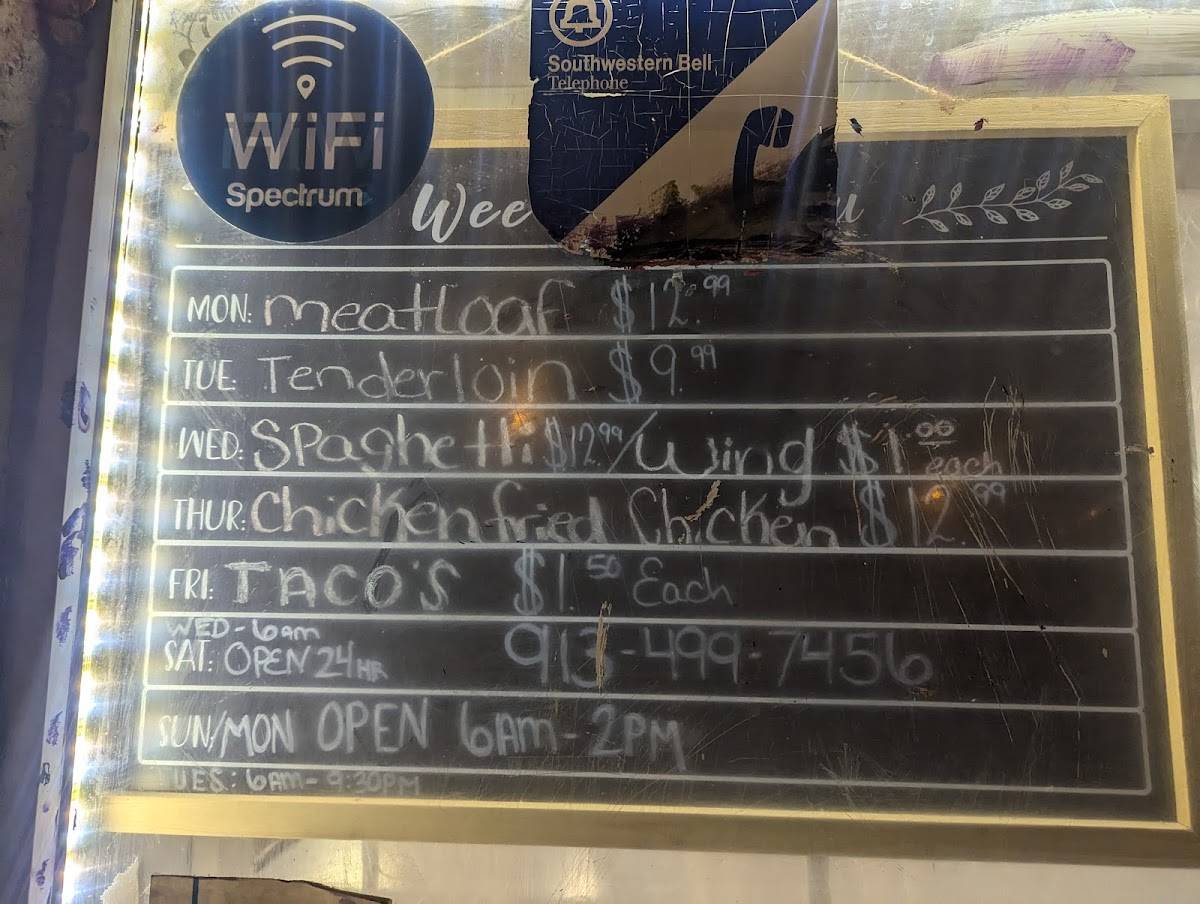 WiFi
Spectrum
Southwestern Bell
Telephone
MON: meatloaf $12.99
TUE: Tenderloin $9.99
WED: Spaghetti $12.99/wing $1.00 each
THUR: Chicken fried Chicken $12.99
FRI: TACO'S $1.50 Each
WED - 6am
SAT: OPEN 24HR 913-499-7456
SUN/MON OPEN 6AM - 2PM
TUES: 6AM - 9:30PM